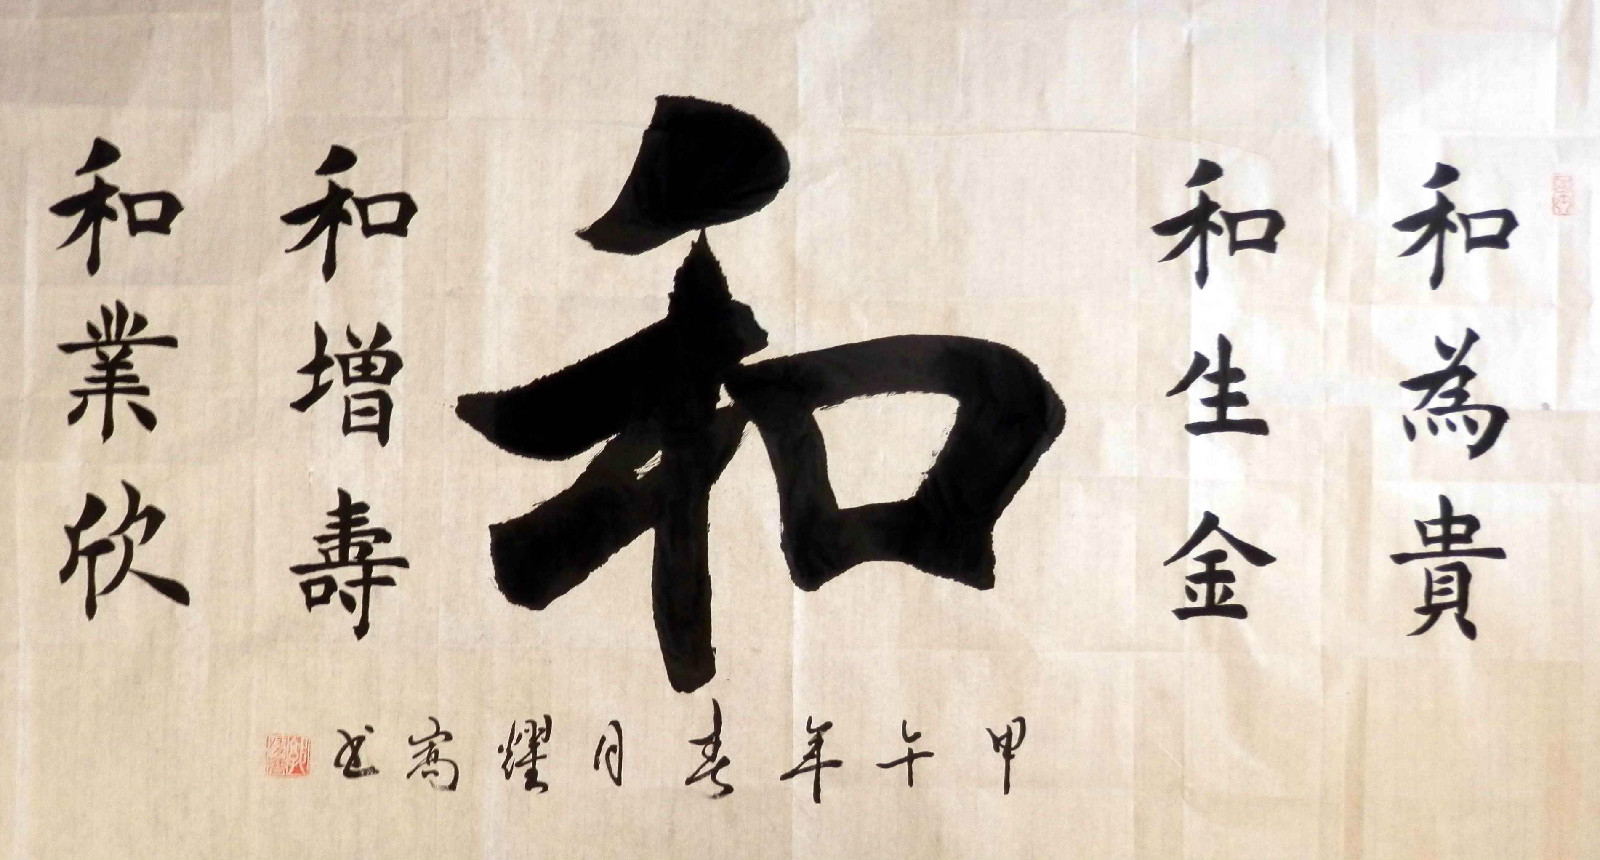 和為貴
和生金
和
和增壽
和業欣
甲午年春月耀嵩书